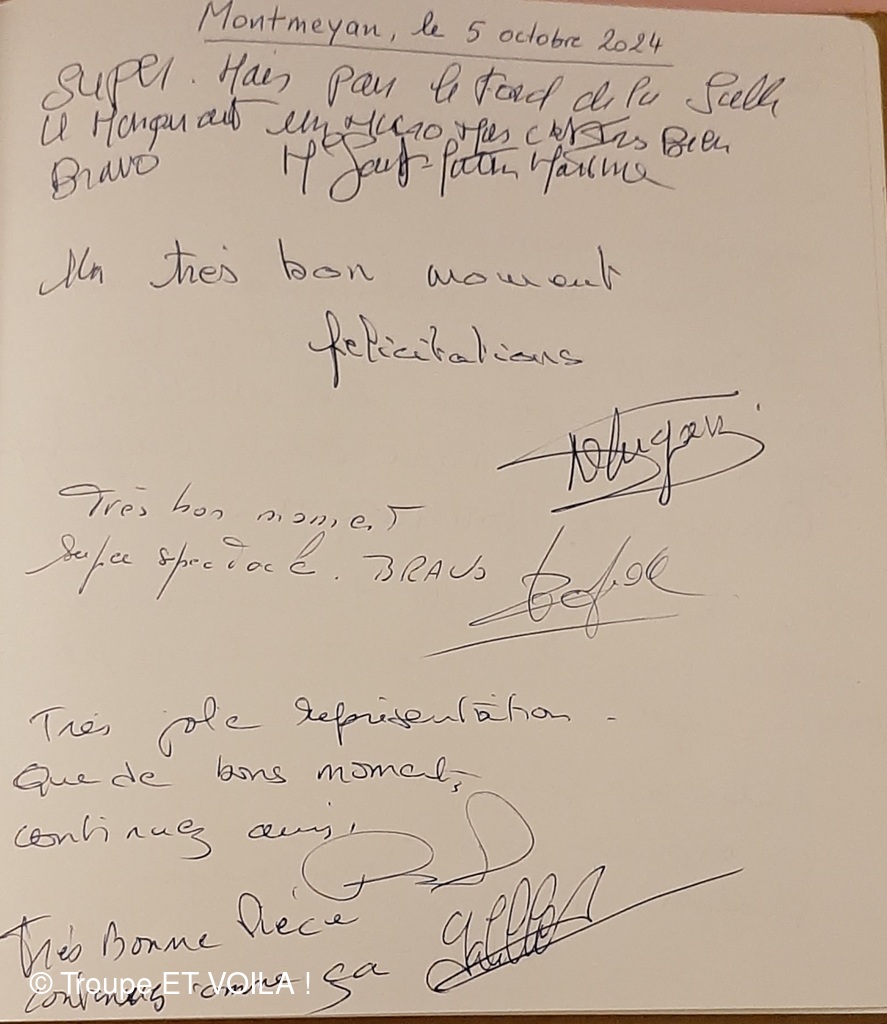 Montmeyan, le 5 octobre 2024
Super. Mais par le fond de la Salle
il Manquait un Micro Mais c'est Très Bien
Bravo
Un très bon moment
felicitations
Très bon moment
Super spectacle. BRAVO
Très jolie représentation -
Que de bons moments,
continuez ainsi,
Très Bonne Pièce
continuez comme ça
© Troupe ET VOILA !